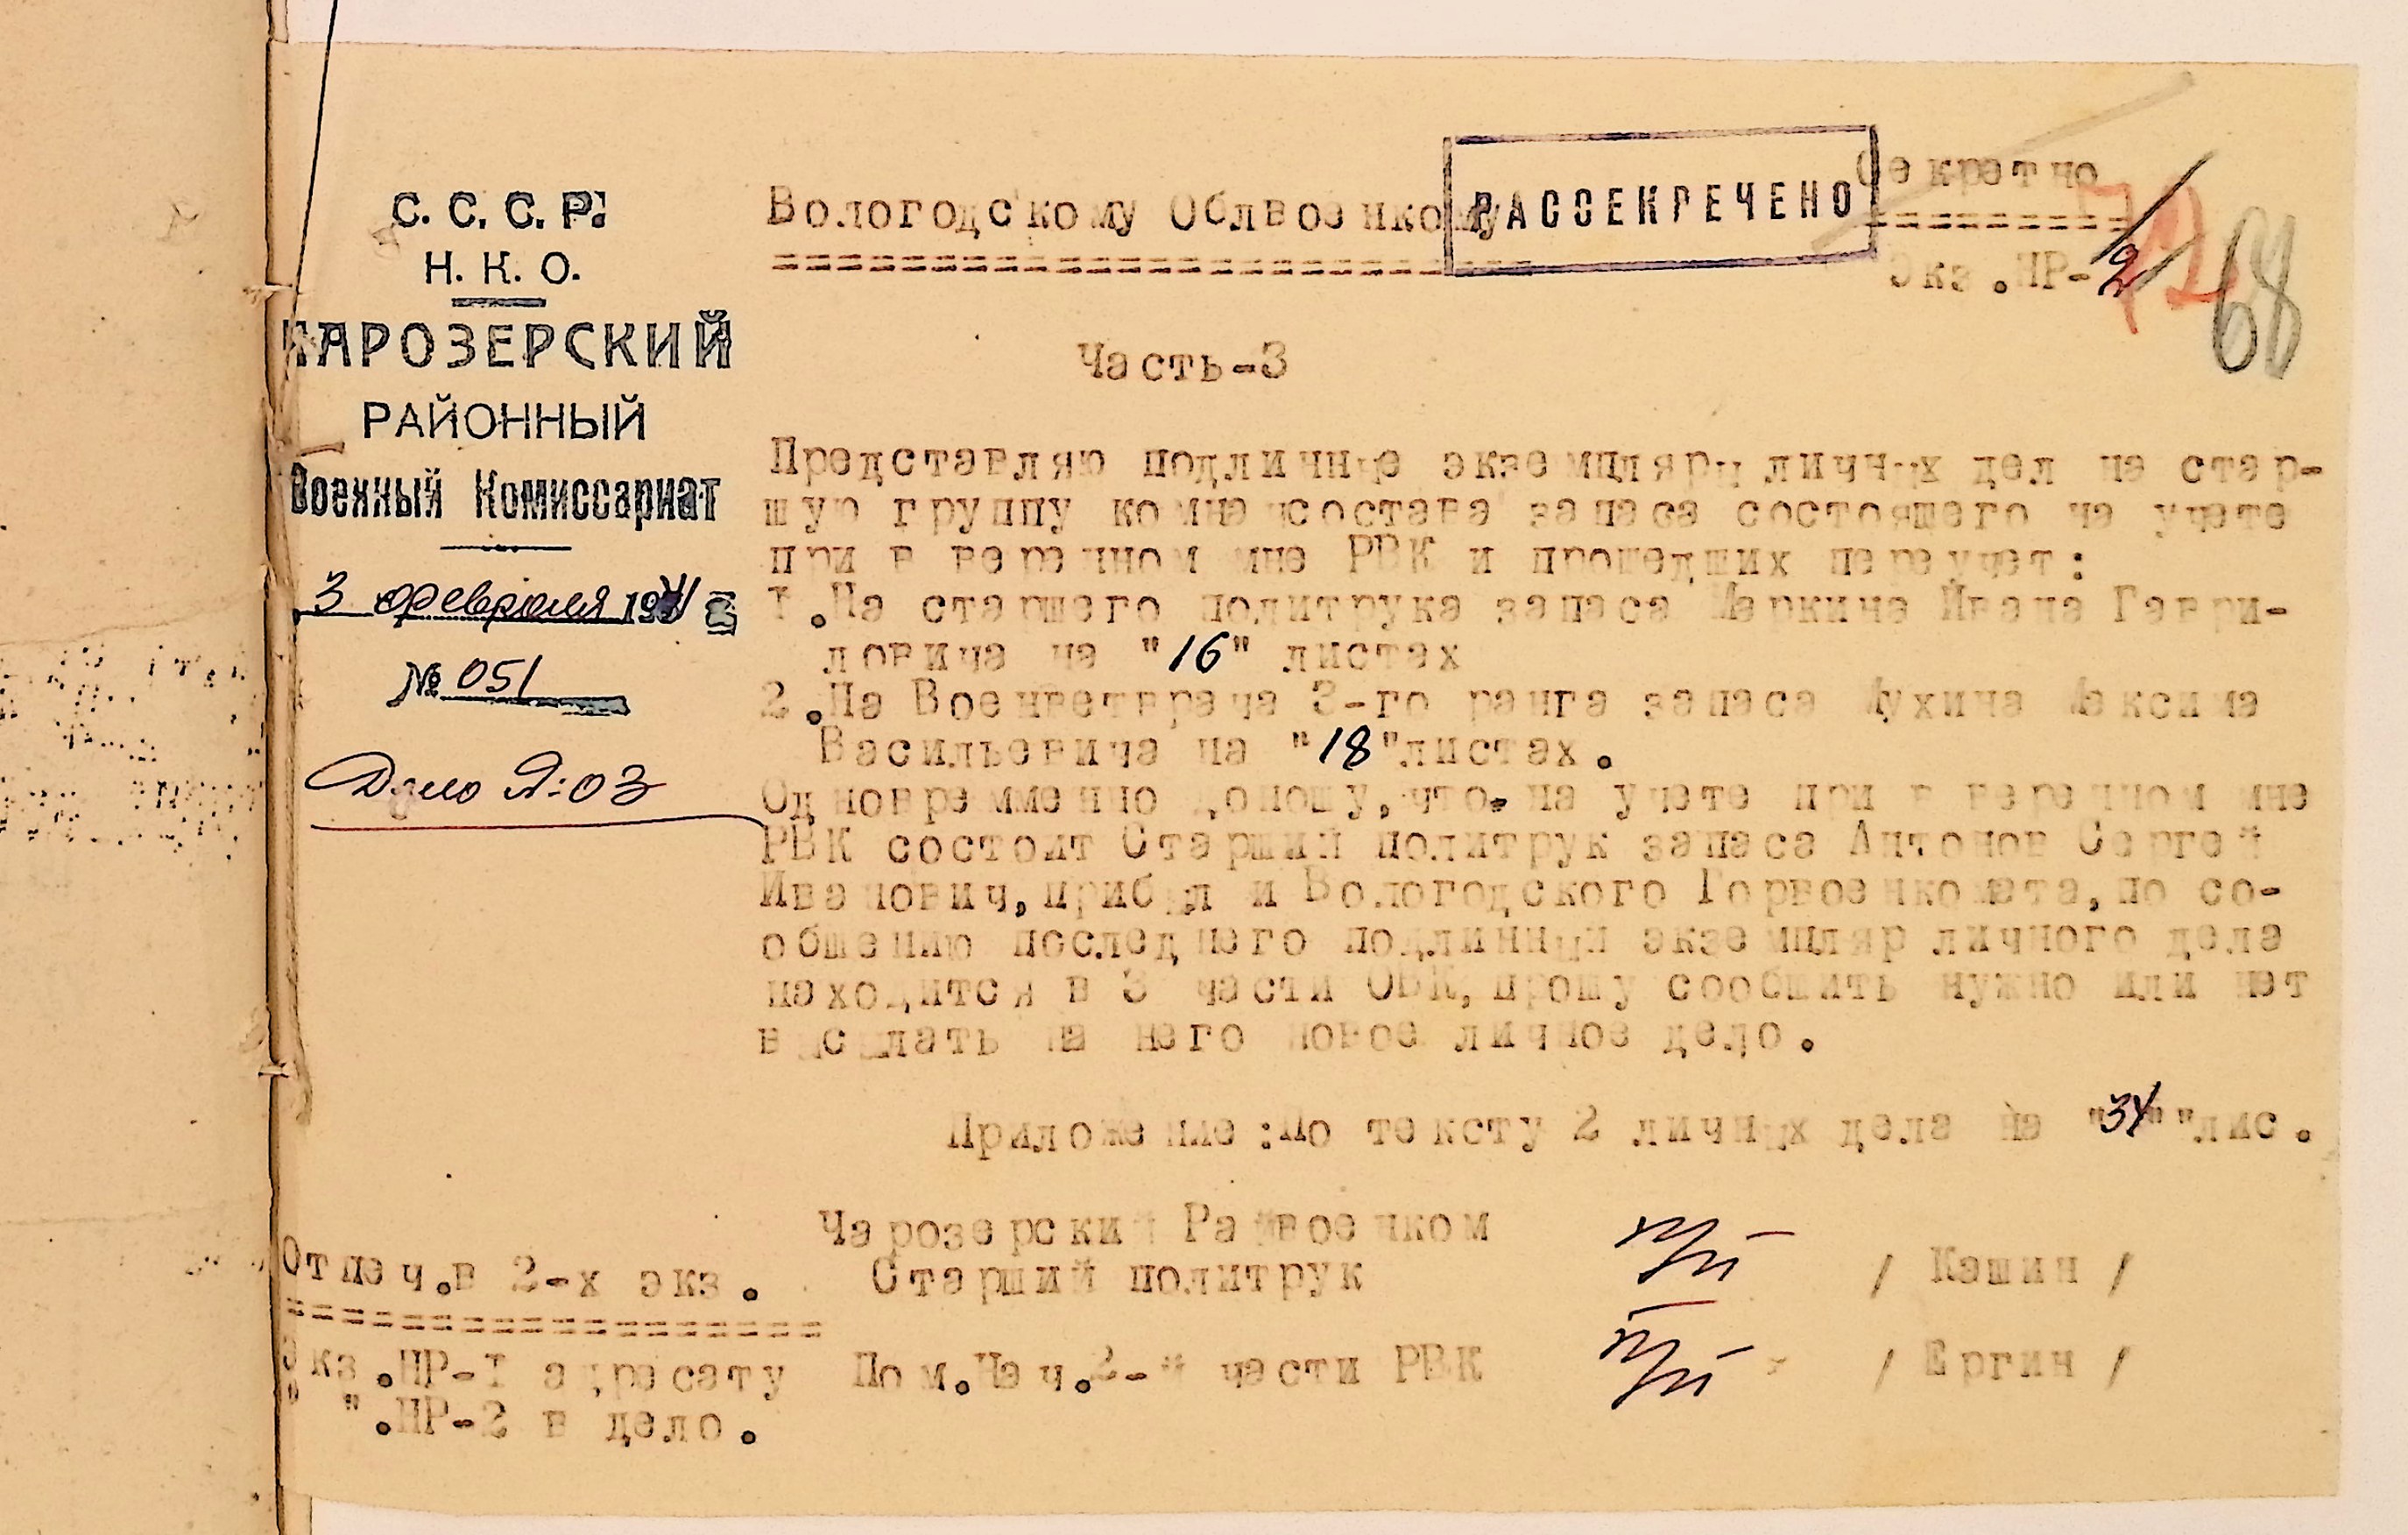 С. С. С. Р.
Н. К. О.
ЧАРОЗЕРСКИЙ
РАЙОННЫЙ
Военный Комиссариат
3 февраля 1941 г.
№ 051
Дело №:03
Вологодскому Облвоенкому
РАССЕКРЕЧЕНО
Секретно
Экз.НР-2
72
68
Часть-3
Представляю подлинные экземпляры личных дел на стар-
шую группу комначсостава запаса состоящего на учете
при вверенном мне РВК и прошедших переучет:
I.На старшего политрука запаса Маркича Ивана Гаври-
ловича на "16" листах
2.На Военветврача 3-го ранга запаса Мухина Максима
Васильевича на "18"листах.
Одновремменно доношу,что на учете при вверенном мне
РВК состоит Старший политрук запаса Антонов Сергей
Иванович,прибыл и Вологодского Горвоенкомата,по со-
общению последнего подлинный экземпляр личного дела
находится в 3 части ОВК,прошу сообщить нужно или нет
высылать на него новое личное дело.
Приложение:По тексту 2 личных дела на "34" "лис.
Чарозерский Райвоенком
Старший политрук / Кашин /
Пом.Нач.2-й части РВК / Ергин /
Отпеч.в 2-х экз.
Экз.НР-I адресату
" ".НР-2 в дело.